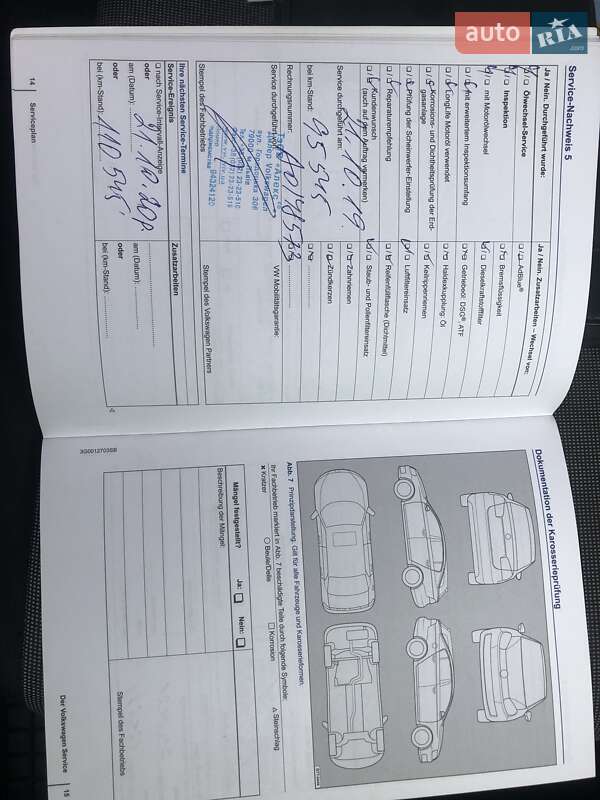 auto
RIA
.com
Service-Nachweis 5
Ja / Nein: Durchgeführt wurde:
Ölwechsel-Service
Inspektion
mit Motorölwechsel
mit erweitertem Inspektionsumfang
LongLife Motoröl verwendet
Korrosions- und Dichtheitsprüfung der Erd-
gasanlage
Prüfung der Scheinwerfer-Einstellung
Reparaturempfehlung
Kundenwunsch
(auch auf den Auftrag vermerken)
Service durchgeführt am:
10.19
bei km-Stand: 95545
Rechnungsnummer:
Service durchgeführt von:
Stempel des Fachbetriebs
Дилер Volkswagen
Ja / Nein: Zusatzarbeiten – Wechsel von:
AdBlue®
Bremsflüssigkeit
Dieselkraftstofffilter
Getriebeöl: DSG® ATF
Haldexkupplung: Öl
Keilrippenriemen
Luftfiltereinsatz
Reifenfüllflasche (Dichtmittel)
Staub- und Pollenfiltereinsatz
Zahnriemen
Zündkerzen
VW Mobilitätsgarantie:
Stempel des Volkswagen Partners
Ihre nächsten Service-Termine
Service-Ereignis
□ nach Service-Intervall-Anzeige
oder
am (Datum):
oder
bei (km-Stand): 110545
Zusatzarbeiten
am (Datum):
oder
bei (km-Stand):
14 Serviceplan
3G0012703SB
Dokumentation der Karosserieprüfung
Abb. 7 Prinzipdarstellung: Gilt für alle Fahrzeuge und Karosserieformen.
Ihr Fachbetrieb markiert in Abb. 7 beschädigte Teile durch folgende Symbole:
× Kratzer ○ Beule/Delle □ Korrosion △ Steinschlag
Mängel festgestellt? Ja: □ Nein: □
Beschreibung der Mängel:
Stempel des Fachbetriebs
Der Volkswagen Service 15